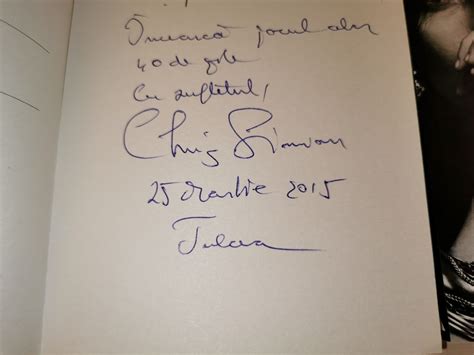 Încearcă jocul
40 de zile
Cu sufletul,
Chris Simion
25 Martie 2015
Tulcea